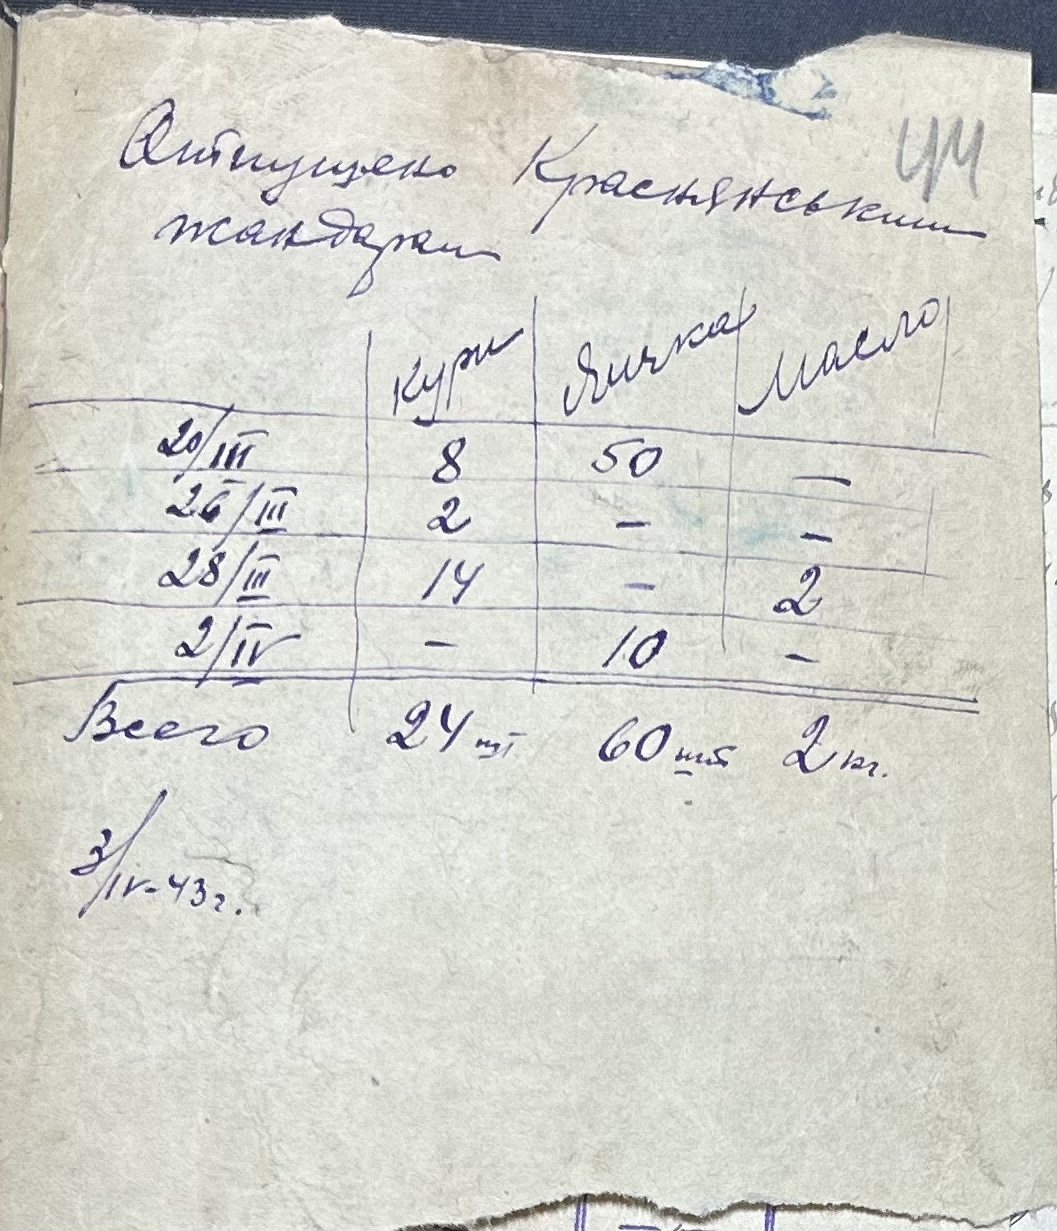 44
Отпущено Краснянським
жандарам
Кури Яичка Масло
20/III 8 50 —
26/III 2 - -
28/III 14 - 2
2/IV - 10 -
Всего 24 шт 60 шт 2 кг.
3/IV-43 г.